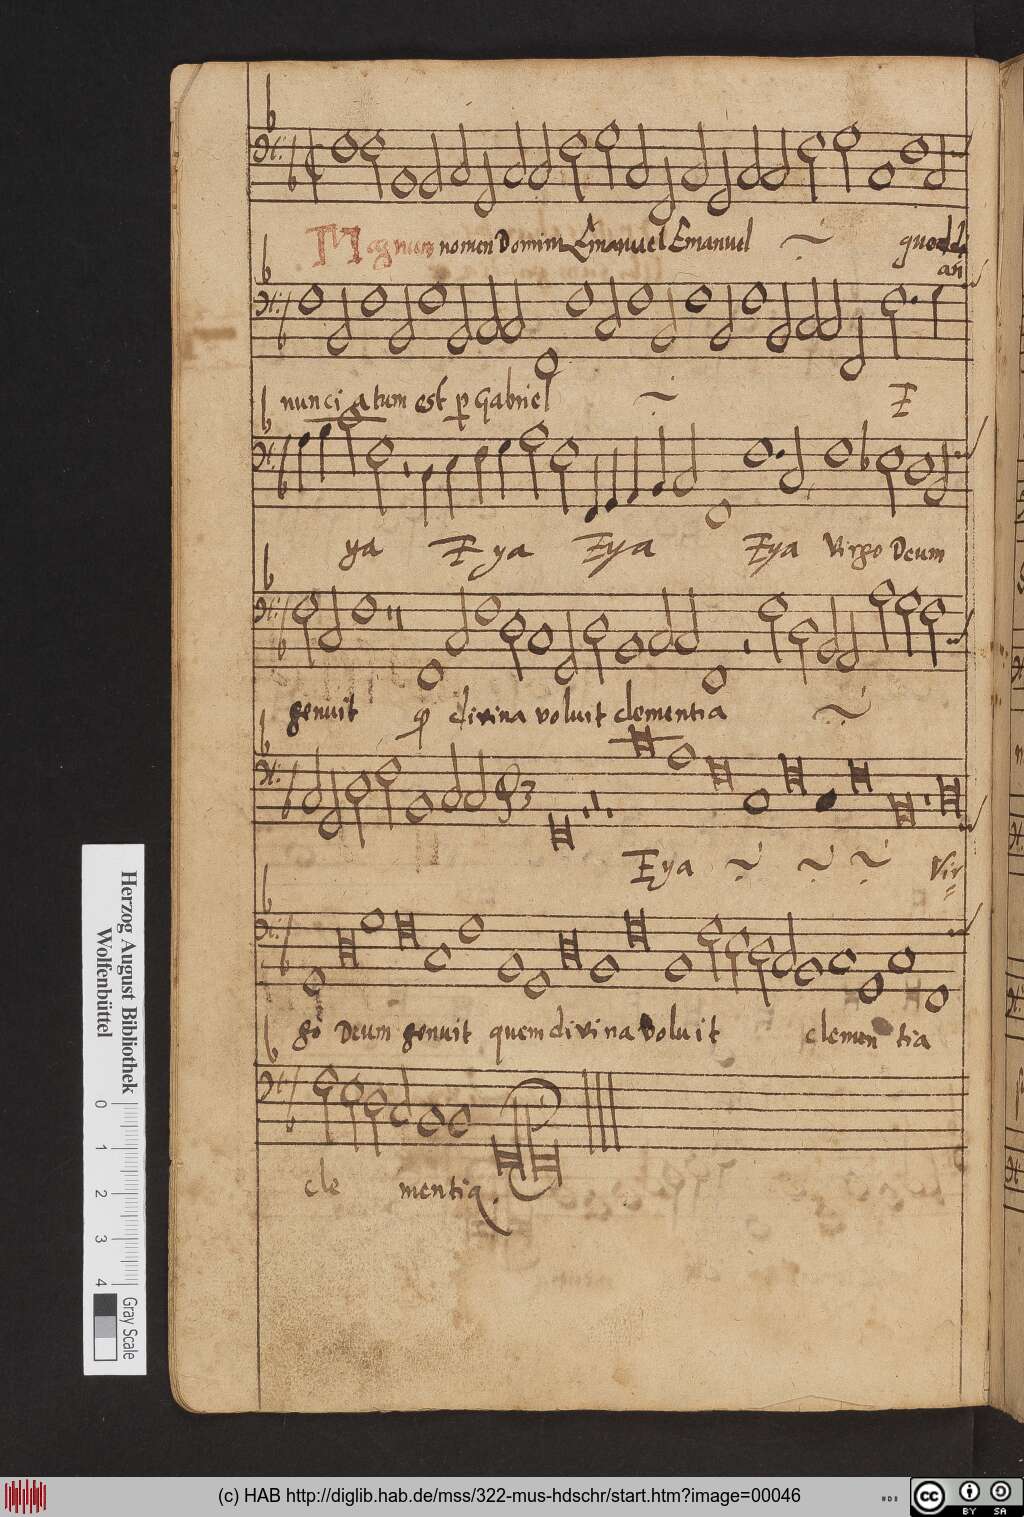 Magnum nomen Domini Emanuel Emanuel
quod
an
nunciatum est p Gabriel E
ya E ya Eya Eya Virgo Deum
genuit divina voluit clementia
Eya Vir
go Deum genuit quem divina voluit clemen tia
cle mentia.
Herzog August Bibliothek
Wolfenbüttel
0 1 2 3 4
Gray Scale
(c) HAB http://diglib.hab.de/mss/322-mus-hdschr/start.htm?image=00046
cc BY SA